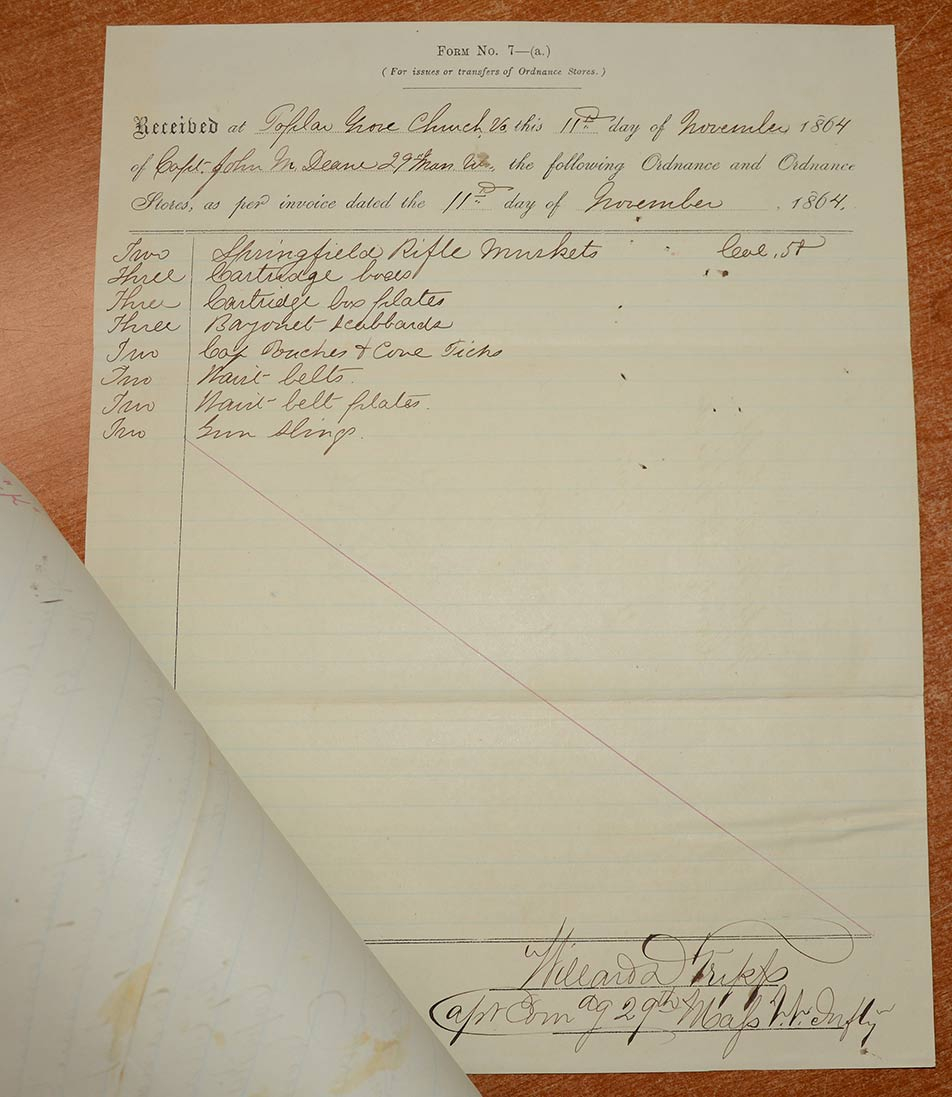 Form No. 7—(a.)
(For issues or transfers of Ordnance Stores.)
Received at Poplar Grove Church, Va this 11th day of November 1864
of Capt. John M Deane 29th Mass Vols, the following Ordnance and Ordnance
Stores, as per invoice dated the 11th day of November, 1864.
Two Springfield Rifle Muskets Cal .58
Three Cartridge boxes
Three Cartridge box plates
Three Bayonet Scabbards
Two Cap Pouches & Cone Picks
Two Waist belts.
Two Waist belt plates.
Two Gun Slings.
Willard D Tripp
Capt Comdg 29th Mass V.V. Inft'y